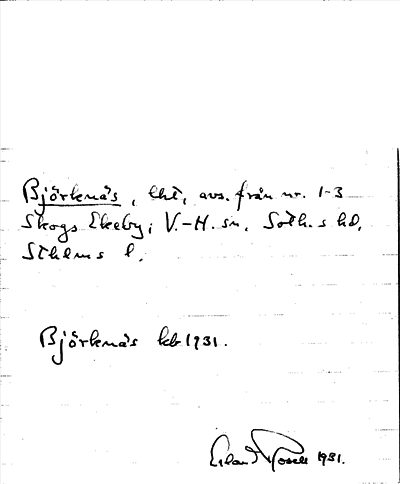 Björknäs, lht, avs. från nr. 1-3
Skogs Ekeby, V.-H. sn, Soth.s hd,
Sthlms l.
Björknäs kb 1931.
Erland Rosell 1931.